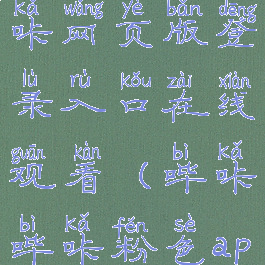 kǎ wǎng yè bǎn dēng
咔网页版登
lù rù kǒu zài xiàn
录入口在线
guān kàn bì kǎ
观看（哔咔
bì kǎ fěn sè
哔咔粉色ap